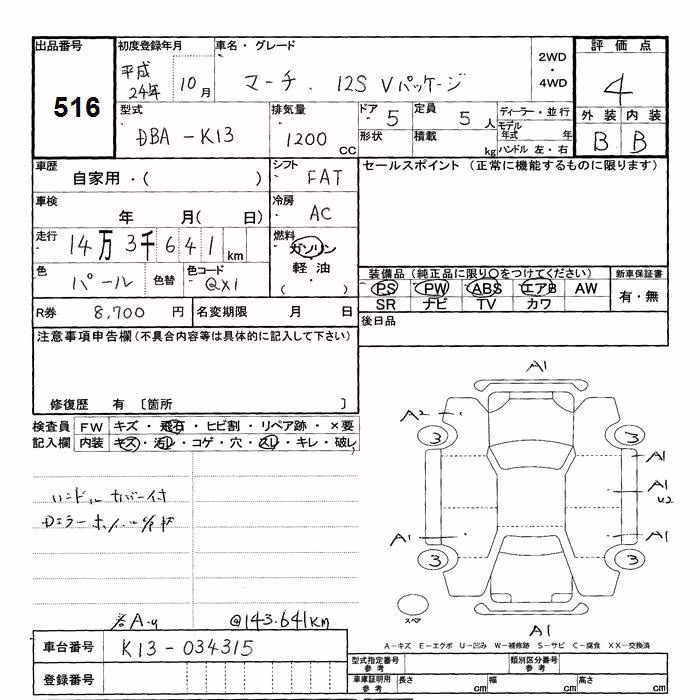 出品番号 初度登録年月 車名・グレード 評価点
516
平成 24年 10月
マーチ 12S Vパッケージ
2WD・4WD
4
型式 排気量 ドア 5 定員 5人 ディーラー・並行 外装 内装
DBA-K13 1200cc 形状 積載 kg モデル年式 年 ハンドル 左・右 B B
車歴 シフト セールスポイント (正常に機能するものに限ります)
自家用・( ) FAT
車検 冷房
年 月( 日) AC
走行 14万3千641km 燃料
ガソリン
軽油
( )
色 パール 色替 色コード QX1
装備品(純正品に限り○をつけてください) 新車保証書
PS PW ABS エアB AW 有・無
SR ナビ TV カワ
R券 8,700円 名変期限 月 日 後日品
注意事項申告欄(不具合内容等は具体的に記入して下さい)
修復歴 有 〔箇所 〕
検査員 FW キズ・飛石・ヒビ割・リペア跡・×要
記入欄 内装 キズ・汚レ・コゲ・穴・スレ・キレ・破レ
ハンドルカバー付
A1
A2
3 3
A1
A1
U2
A1 A1
3 3
スペア
A1
@143.641km
車台番号 K13-034315
登録番号
A-キズ E-エクボ U-凹み W-補修跡 S-サビ C-腐食 XX-交換済
型式指定番号 参考 類別区分番号 参考
車庫証明用 参考 長さ cm 幅 cm 高さ cm